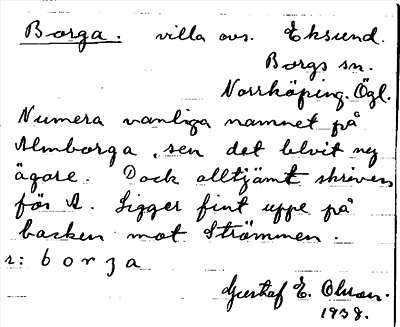 Borga. villa avs. Eksund.
Borgs sn.
Norrköping. Ögl.
Numera vanliga namnet på
Almborga, sen det blvit ny
ägare. Dock alltjämt skriven
för A. Ligger fint uppe på
backen mot Strömmen.
s: borja
Gusthaf E. Olson.
1938.